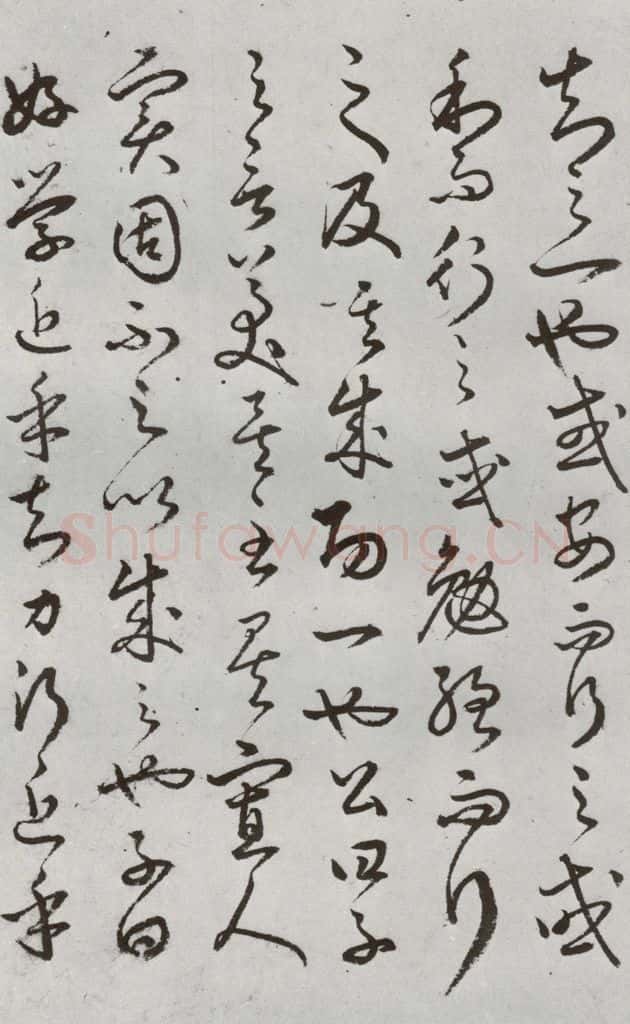 知之一也或安而行之或
利而行之或勉強而行
之及其成功一也公曰子
之言美矣至矣寡人
實固不足以成之也子曰
好學近乎知力行近乎
Shufawang.CN